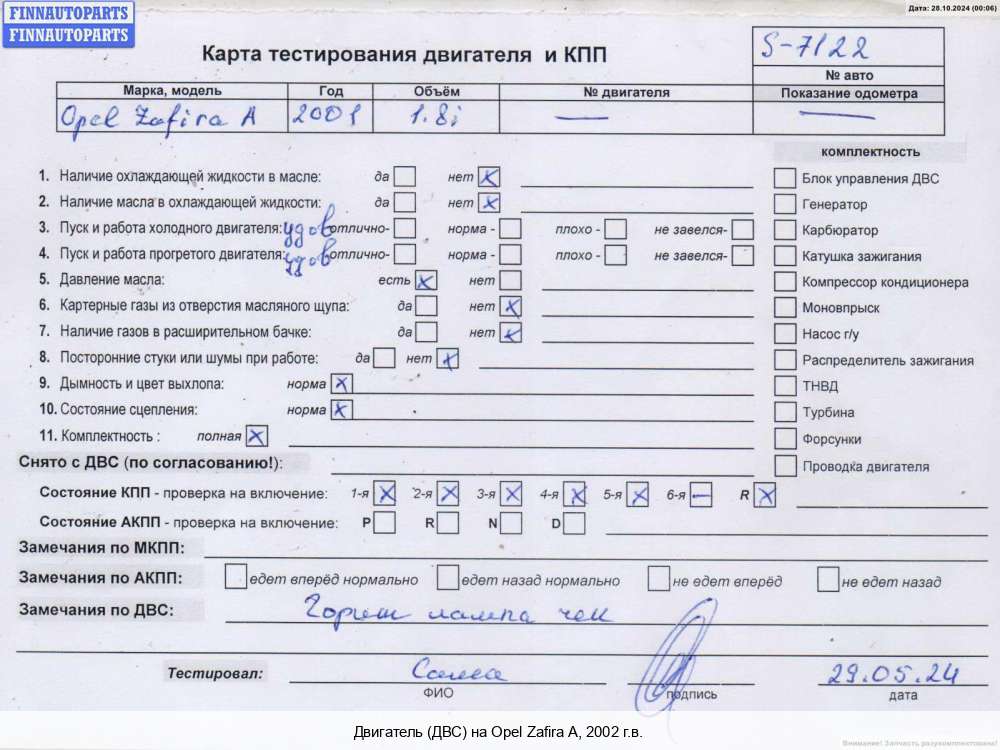 FINNAUTOPARTS
FINNAUTOPARTS
Дата: 28.10.2024 (00:06)
Карта тестирования двигателя и КПП
S-7122
№ авто
Марка, модель Год Объём № двигателя Показание одометра
Opel Zafira A 2001 1.8i — —
комплектность
1. Наличие охлаждающей жидкости в масле: да нет X
Блок управления ДВС
2. Наличие масла в охлаждающей жидкости: да нет X
Генератор
3. Пуск и работа холодного двигателя: удов отлично- норма - плохо - не завелся-
Карбюратор
4. Пуск и работа прогретого двигателя: удов отлично- норма - плохо - не завелся-
Катушка зажигания
5. Давление масла: есть X нет
Компрессор кондиционера
6. Картерные газы из отверстия масляного щупа: да нет X
Моновпрыск
7. Наличие газов в расширительном бачке: да нет X
Насос г/у
8. Посторонние стуки или шумы при работе: да нет X
Распределитель зажигания
9. Дымность и цвет выхлопа: норма X
ТНВД
10. Состояние сцепления: норма X
Турбина
11. Комплектность : полная X
Форсунки
Снято с ДВС (по согласованию!):
Проводка двигателя
Состояние КПП - проверка на включение: 1-я X 2-я X 3-я X 4-я X 5-я X 6-я — R X
Состояние АКПП - проверка на включение: P R N D
Замечания по МКПП:
Замечания по АКПП: едет вперёд нормально едет назад нормально не едет вперёд не едет назад
Замечания по ДВС: Горит лампа чек
Тестировал: Саша 29.05.24
ФИО подпись дата
Двигатель (ДВС) на Opel Zafira A, 2002 г.в.
Внимание! Запчасть разукомплектована!